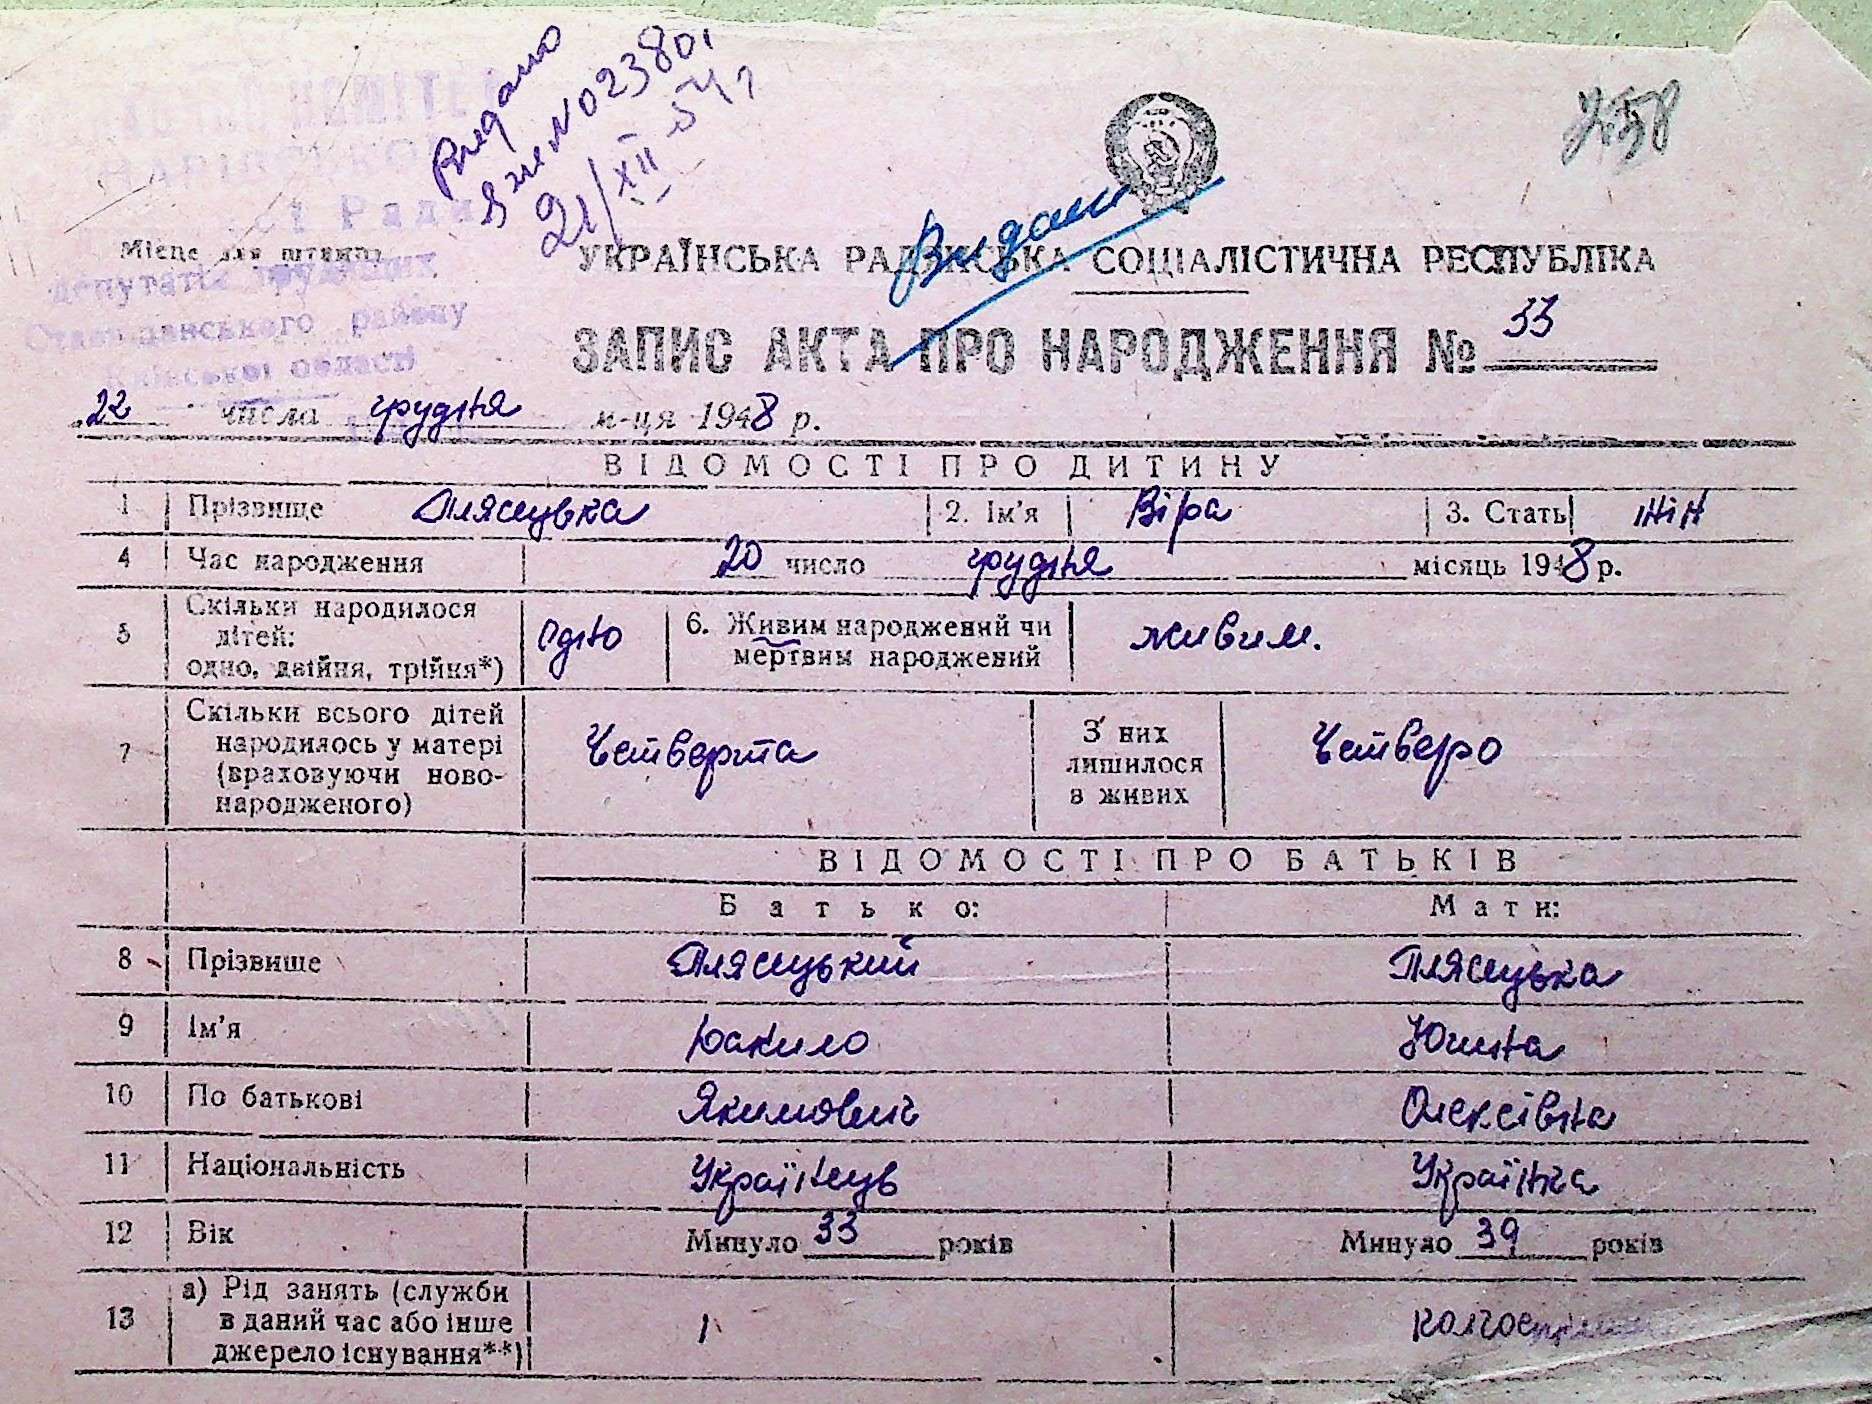 Видано
№ 023801
21/XII 54 г
258
Видано
Місце для штампа
Ради
депутатів трудящих
району
Київської області
УКРАЇНСЬКА РАДЯНСЬКА СОЦІАЛІСТИЧНА РЕСПУБЛІКА
ЗАПИС АКТА ПРО НАРОДЖЕННЯ № 33
22 числа грудня м-ця 1948 р.
ВІДОМОСТІ ПРО ДИТИНУ
1 Прізвище Плясецька 2. Ім'я Віра 3. Стать жін
4 Час народження 20 число грудня місяць 1948 р.
5 Скільки народилося дітей: одно, двійня, трійня*) одно 6. Живим народжений чи мертвим народжений живим.
7 Скільки всього дітей народилось у матері (враховуючи новонародженого) Четверта З них лишилося в живих Четверо
ВІДОМОСТІ ПРО БАТЬКІВ
Батько: Мати:
8 Прізвище Плясецький Плясецька
9 Ім'я
10 По батькові Якимович Олексівна
11 Національність Українець Українка
12 Вік Минуло 33 років Минуло 39 років
13 а) Рід занять (служби в даний час або інше джерело існування**)